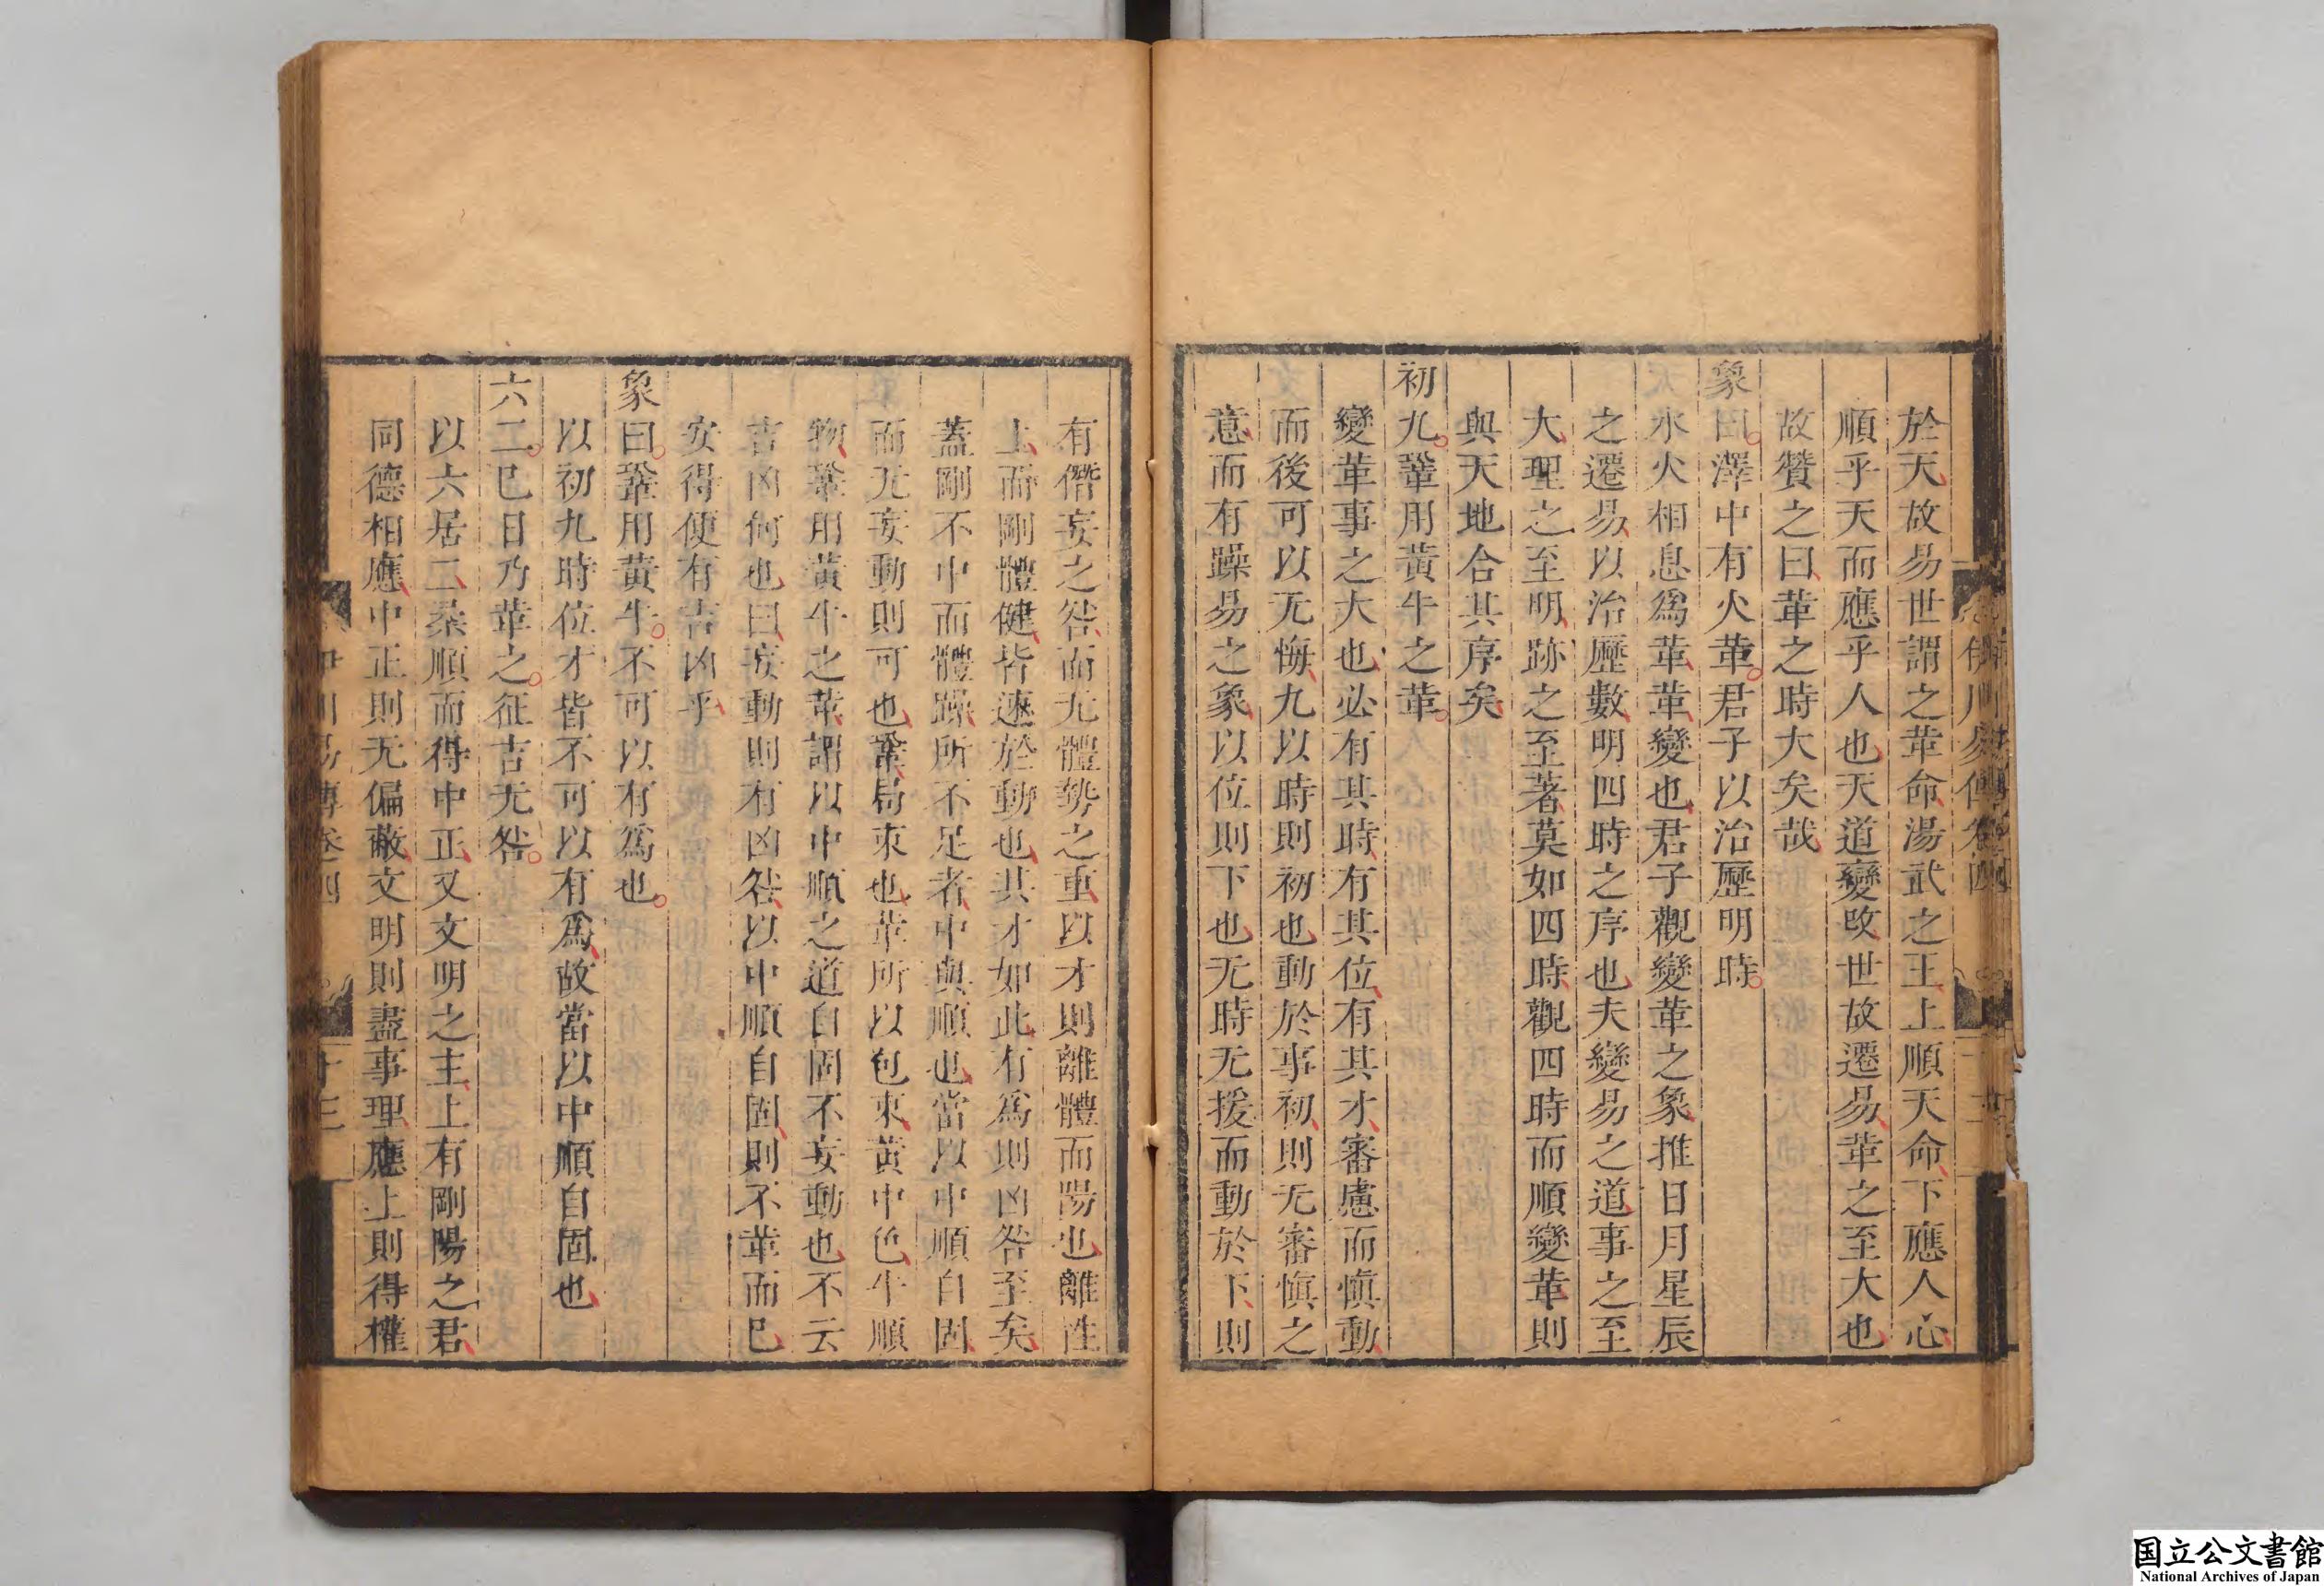 於天故易世謂之革命湯武之王上順天命下應人心
順乎天而應乎人也天道變改世故遷易革之至大也
故贊之曰革之時大矣哉
象曰澤中有火革君子以治歷明時
水火相息爲革革變也君子觀變革之象推日月星辰
之遷易以治歷數明四時之序也夫變易之道事之至
大理之至明跡之至著莫如四時觀四時而順變革則
與天地合其序矣
初九鞏用黃牛之革
變革事之大也必有其時有其位有其才審慮而慎動
而後可以无悔九以時則初也動於事初則无審慎之
意而有躁易之象以位則下也无時无援而動於下則
有僭妄之咎而无體勢之重以才則離體而陽也離性
上而剛體健皆速於動也其才如此有爲則凶咎至矣
蓋剛不中而體躁所不足者中與順也當以中順自固
而无妄動則可也鞏局束也革所以包束黃中色牛順
物鞏用黃牛之革謂以中順之道自固不妄動也不云
吉凶何也曰妄動則有凶咎以中順自固則不革而已
安得便有吉凶乎
象曰鞏用黃牛不可以有爲也
以初九時位才皆不可以有爲故當以中順自固也
六二巳日乃革之征吉无咎
以六居二柔順而得中正又文明之主上有剛陽之君
同德相應中正則无偏蔽文明則盡事理應上則得權
伊川易傳卷四
十三
国立公文書館
National Archives of Japan